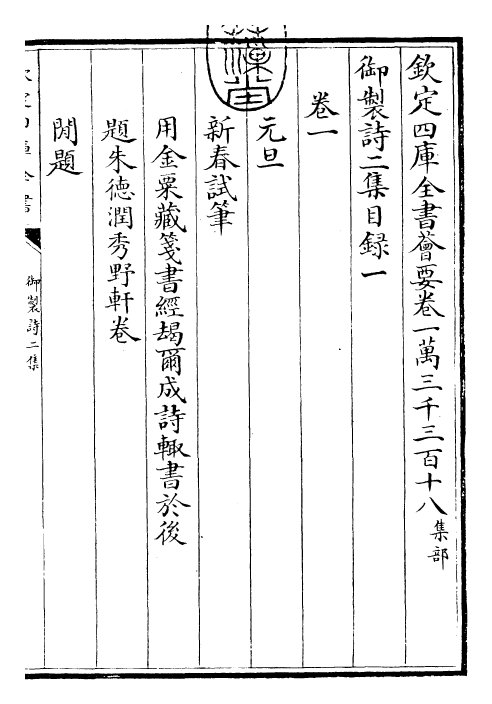 欽定四庫全書薈要卷一萬三千三百十八集部
御製詩二集目録一
卷一
元旦
新春試筆
用金粟藏箋書經朅爾成詩輒書於後
題朱德潤秀野軒卷
閒題
御製詩二集